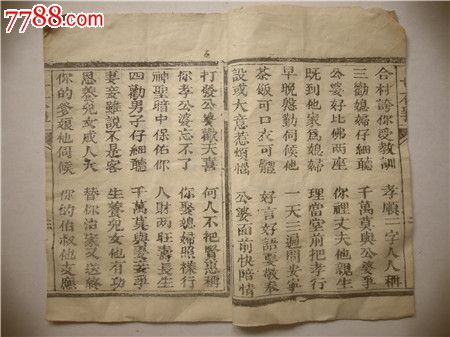 7788.com
合村誇你受教訓 孝順二字人人稱
三勸媳婦仔細聽 千萬莫與公婆爭
公婆好比佛两座 你裡丈夫他親生
既到他家為媳婦 理當堂前把孝行
早晚慇勤伺候他 一天三遍問安寧
茶飯可口衣可體 好言好語要敬奉
設或大意惹煩惱 公婆面前快賠情
打發公婆歡天喜 何人不把賢惠稱
你孝公婆忘不了 後輩媳婦照樣行
神聖暗中保佑你 人財两旺壽長生
四勸男子仔細聽 千萬莫與妻妾爭
妻妾雖說不是客 生養兒女他有功
恩養兒女成人大 替你治家又送終
你的爹娘他伺候 你的伯叔他支應